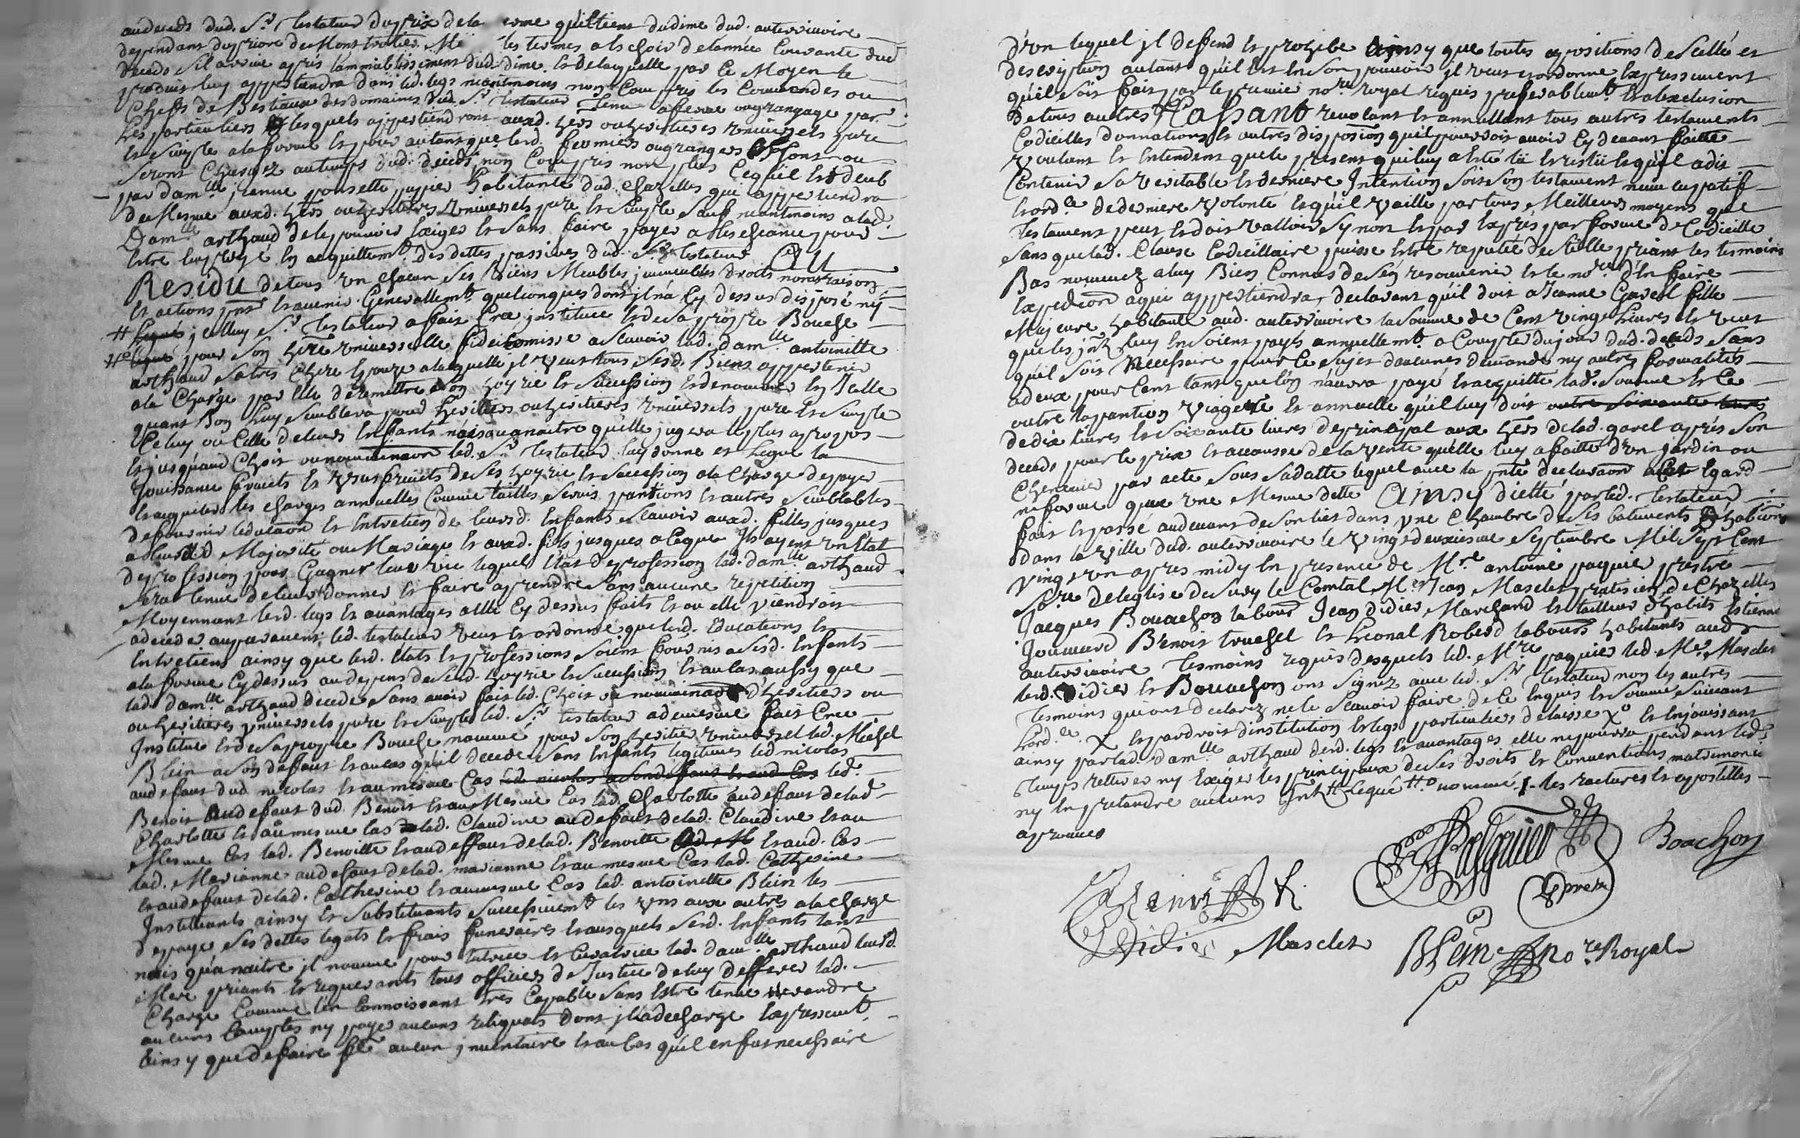 au deceds dud. Sr. Testateur du prix de la ferme qu'il tient du disme dud. auterivoire
dependant du priore de Montverdun
deceds sil arrive apres dud. disme Et de laquelle par le Moyen le
produit luy appartiendra dans led. legs neantmoins non Compris les Commandes ou
Cheffs de Bestiaux des domaines dud. Sr. Testateur Tenu afferme ou grangeage par
les particuliers lesquels appartiendront auxd. hers ou heritieres universels pure
Et simple a la forme Et pour autant que lesd. fermiers ou grangers En sont ou
seront Chargez au temps dud. deceds non Compris non plus Ce qui Est deub
par damlle. jeanne ponsette papier habitante dud. Chazelles que appartiendra
de Mesme auxd. hers ou heritieres universels pure Et simple sauf neantmoins a lad.
Damlle. arthaud de le pouvoir Exiger Et sans faire payer a L'escheance pour
Estre Employé En acquittemt. des dettes passives dud. Sr. testateur Au
Residu de tous un chacun ses biens Meubles immeubles droits noms raisons
Et actions pnt. Et avenir Generallemt. quelconques dont il n'a Cy dessus disposé ny
# legué icelluy Sr. Testateur a fait Cree institué Et de sa propre Bouche
# pour son here universelle fideicomisse a scavoir lad. damlle. antoinette
arthaud sa tres Chere Epouze a laquelle il veut tous sesd. Biens appartenir
a la Charge par Elle de remettre son hoyrie Et succession Et de nommer En Icelle
quant Bon luy semblera pour heritiers ou heritieres universels pure Et simple
Celuy ou Celle de leurs Enfants nais ou a naitre qu'elle jugera le plus a propos
Et jusqu'aud Choix ou nomination led. Sr. Testateur luy donne et legue la
Jouissance fruits Et usufruits de ses hoyrie Et succession a la Charge de payer
Et acquiter les charges annuelles Comme tailles servis pantions Et autres semblables
de fournir Education Et Entretien de leursd. Enfants scavoir auxd. filles jusques
a leurd. Majorité ou Mariage Et auxd. fils jusques a ce que Ils ayent un Etat
de profession pour Gagner leur vie lequel Etat de profession lad. damlle. arthaud
sera tenue de leur donner Et faire aprendre sans aucune repetition
Moyennant lesd. legs Et avantages a Elle Cy dessus faits Et ou elle viendroit
a deceder auparavent led. testateur veut Et ordonne que lesd. Educations Et
Entretiens ainsy que lesd. Etats Et professions soient fournis a sesd. Enfants
a la forme Cy dessus au depens de sesd. hoyrie Et succession Et au cas aussy que
lad. damlle. arthaud decede sans avoir fait led. Choix ou nomination d'heritiers ou
ou heritieres universels pure Et simple led. Sr. Testateur a de mesme fait Cree
Institué Et de sa propre Bouche nommé pour son heritier universel led. Michel
Blein a son deffaut Et au cas qu'il decede sans Enfants legitimes led. nicolas
au defaut dud. nicolas Et au mesme Cas led. nicolas a son deffaut Et aud Cas led.
Benoit Au defaut dud. Benoit Et au Mesme Cas lad. Charlotte au defaut de lad.
Charlotte Et au mesme Cas lad. Claudine au defaut de lad. Claudine Et au
Mesme Cas lad. Benoitte Et au deffaut de lad. Benoitte Et aud. Cas
lad. Marianne au defaut de lad. marianne Et au mesme Cas lad. Catherine
Et au defaut de lad. Catherine Et au mesme Cas lad. antoinette Blein les
Instituants ainsy Et substituants successivemt. les uns aux autres a la Charge
de payer ses dettes legats Et frais funeraires Et auxquels sesd. Enfants tant
nais qu'a naitre il nomme pour tutrice Et Curatrice lad. damlle. arthaud leurd.
Mere priants Et requerants tous officiers de Justice de luy defferer lad.
Charge Comme l'En Connoissant tres Capable sans Estre tenue de rendre
aucuns Comptes ny payer aucuns reliquats dont il la decharge Expressemt.
Ainsy que de faire fe. aucun inventaire Et au Cas qu'il en fut necessaire
d'un lequel il deffend Et prohibe Ainsy que toutes apositions de scellés et
description autant qu'il Est En son pouvoir il veut Et ordonne Expressement
qu'il soit fait par le premier nore. royal requis preferablemt. Et a l'exclusion
de tous autres Cassant revoquant Et annullant tous autres testaments
Codicilles donnations Et autres disposions qu'il pourroit avoir Cy devant faitte
voulant Et Entendant que le present qui luy a Eté lu Et relu lequel a dit
Contenir sa veritable Et derniere Intention soit son testament nuncupatif
Et ord. de derniere volonté lequel vaille par tous Meilleurs moyens que
testament peut Et doit valloir sinon Et par Exprés par forme de Codicille
sans que lad. Clause Codicillaire puisse Estre reputé de stille priant les temoins
Bas nommez a luy Bien Connus de s'En resouvenir Et le nore. d'En faire
Expedition a qui appartiendra, declarant qu'il doit a Jeanne Gavel fille
Majeure habitante aud. auterivoire la somme de Cent vingt livres Et veut
que les jnts. luy En soient payés annuellemt. a Compter du jour dud. deceds sans
qu'il soit Necessaire pour Ce sujet d'aucunes demandes ny autres formalités
a deux pour Cent tant que l'on n'aura payé Et acquitté lad. somme Et Ce
outre la pantion viagere Et annuelle qu'il luy doit outre soixante livres
de dix livres Et soixante livres de principal aux hers de lad. gavel apres son
deceds pour le prix Et a causse de la vente qu'elle luy a faitte d'un jardin ou
Cheneviere par acte sous sa datte lequel avec la pnte declaration a Cet Egard
ne forme que une Mesme dette Ainsy dicté par led. Testateur
fait Et passé au devant de son lict dans une Chambre de ses batiments d'habitation
dans la ville dud. auterivoire le vingt deuxieme Septembre Mil Sept Cent
vingt un apres midy En presence de Mre. antoine paquié prestre
Sre. de l'eglise de sury le Comtal Mr. Jean Masclet praticien de Chazelles
Jacques Bouachon labour Jean Didier Marchand Et tailleur d'habits Estienne
Joumard Benoit truchet Et Leonal Robert labours habitants aud.
auterivoire Tesmoins requis desquels led. Mre. paquier led. Mr. Masclet
led. Didier Et Bouachon ont signez avec led. Sr. testateur non les autres
Tesmoins qui ont declarez ne le scavoir faire de Ce Enquis Et sommez suivant
l'ord. X Et par droit d'institution Et legs particulier delaissé X Et En jouissant
ainsy par lad. damlle. arthaud desd. legs Et avantages elle ne pourra pendant led.
temps retirer ny Exiger les principaux de ses droits Et Conventions matrimonia
ny En pretendre aucuns Jnt. # legué ## nommé les ratures Et apostilles
aprouvés
Pasquier
pretre
Bouachon
Didier Masclet
Blein nore. Royal